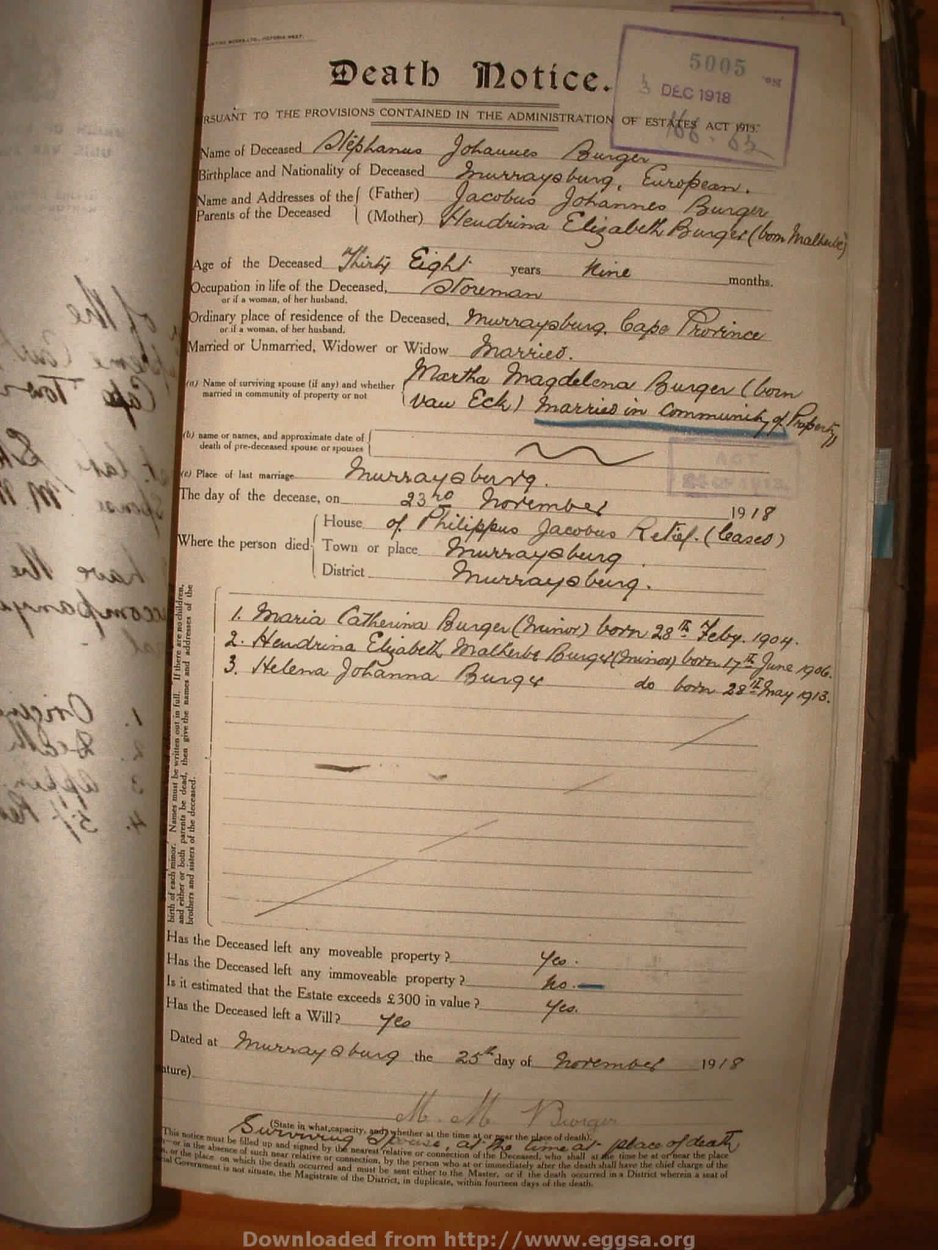 5005
DEC 1918
Death Notice.
RSUANT TO THE PROVISIONS CONTAINED IN THE ADMINISTRATION OF ESTATES ACT 1913.
Name of Deceased Stephanus Johannes Burger
Birthplace and Nationality of Deceased Murraysburg, European.
Name and Addresses of the Parents of the Deceased (Father) Jacobus Johannes Burger
(Mother) Hendrina Elizabeth Burger (born Malherbe)
Age of the Deceased Thirty Eight years Nine months.
Occupation in life of the Deceased, Storeman
or if a woman, of her husband.
Ordinary place of residence of the Deceased, Murraysburg, Cape Province
or if a woman, of her husband.
Married or Unmarried, Widower or Widow Married.
(a) Name of surviving spouse (if any) and whether married in community of property or not Martha Magdelena Burger (born
van Eck) Married in Community of Property
(b) name or names, and approximate date of
death of pre-deceased spouse or spouses
(c) Place of last marriage Murraysburg.
The day of the decease, on 23rd November 1918
House of Philippus Jacobus Retief. (leased)
Where the person died Town or place Murraysburg
District Murraysburg.
birth of each minor. Names must be written out in full. If there are no children,
and either or both parents be dead, then give the names and addresses of the
brothers and sisters of the deceased.
1. Maria Catherina Burger (Minor) born 28th Feby. 1904.
2. Hendrina Elizabeth Malherbe Burger (Minor) born 17th June 1906.
3. Helena Johanna Burger do born 28th May 1913.
Has the Deceased left any moveable property? Yes.
Has the Deceased left any immoveable property? No.
Is it estimated that the Estate exceeds £300 in value? Yes.
Has the Deceased left a Will? Yes
Dated at Murraysburg the 25th day of November 1918
ature)
M. M. Burger
(State in what capacity, and whether at the time at or near the place of death)
Surviving Spouse at the time at place of death
This notice must be filled up and signed by the nearest relative or connection of the Deceased, who shall at the time be at or near the place
or in the absence of such near relative or connection, by the person who at or immediately after the death shall have the chief charge of the
or the place on which the death occurred and must be sent either to the Master, or if the death occurred in a District wherein a seat of
ial Government is not situate, the Magistrate of the District, in duplicate, within fourteen days of the death.
Downloaded from http://www.eggsa.org